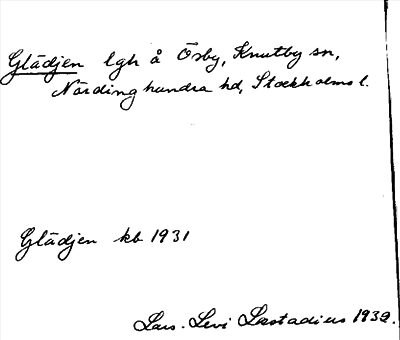 Glädjen lgh å Ösby, Knutby sn,
Närdinghundra hd, Stockholms l.
Glädjen kb 1931
Lars-Levi Læstadius 1932.